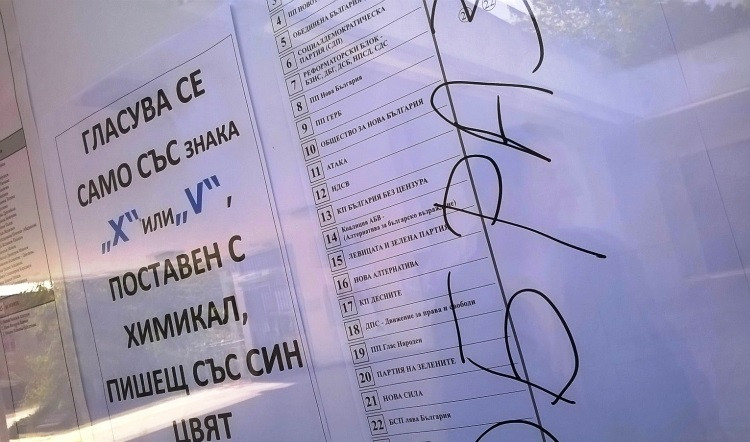 ГЛАСУВА СЕ
САМО СЪС ЗНАКА
„X“ ИЛИ „V“ ,
ПОСТАВЕН С
ХИМИКАЛ,
ПИШЕЩ СЪС СИН
ЦВЯТ
4
5 ОБЕДИНЕНА БЪЛГАРИЯ
6 СОЦИАЛДЕМОКРАТИЧЕСКА
ПАРТИЯ (СДП)
7 РЕФОРМАТОРСКИ БЛОК -
БЗНС, ДБГ, ДСБ, НПСД, СДС
8 ПП Нова България
9 ПП ГЕРБ
10 ОБЩЕСТВО ЗА НОВА БЪЛГАРИЯ
11 АТАКА
12 НДСВ
13 КП БЪЛГАРИЯ БЕЗ ЦЕНЗУРА
14 Коалиция АБВ -
(Алтернатива за българско възраждане)
15 ЛЕВИЦАТА И ЗЕЛЕНА ПАРТИЯ
16 НОВА АЛТЕРНАТИВА
17 КП ДЕСНИТЕ
18 ДПС - Движение за права и свободи
19 ПП Глас Народен
20 ПАРТИЯ НА ЗЕЛЕНИТЕ
21 НОВА СИЛА
22 БСП лява България
22
ОБРАЗ